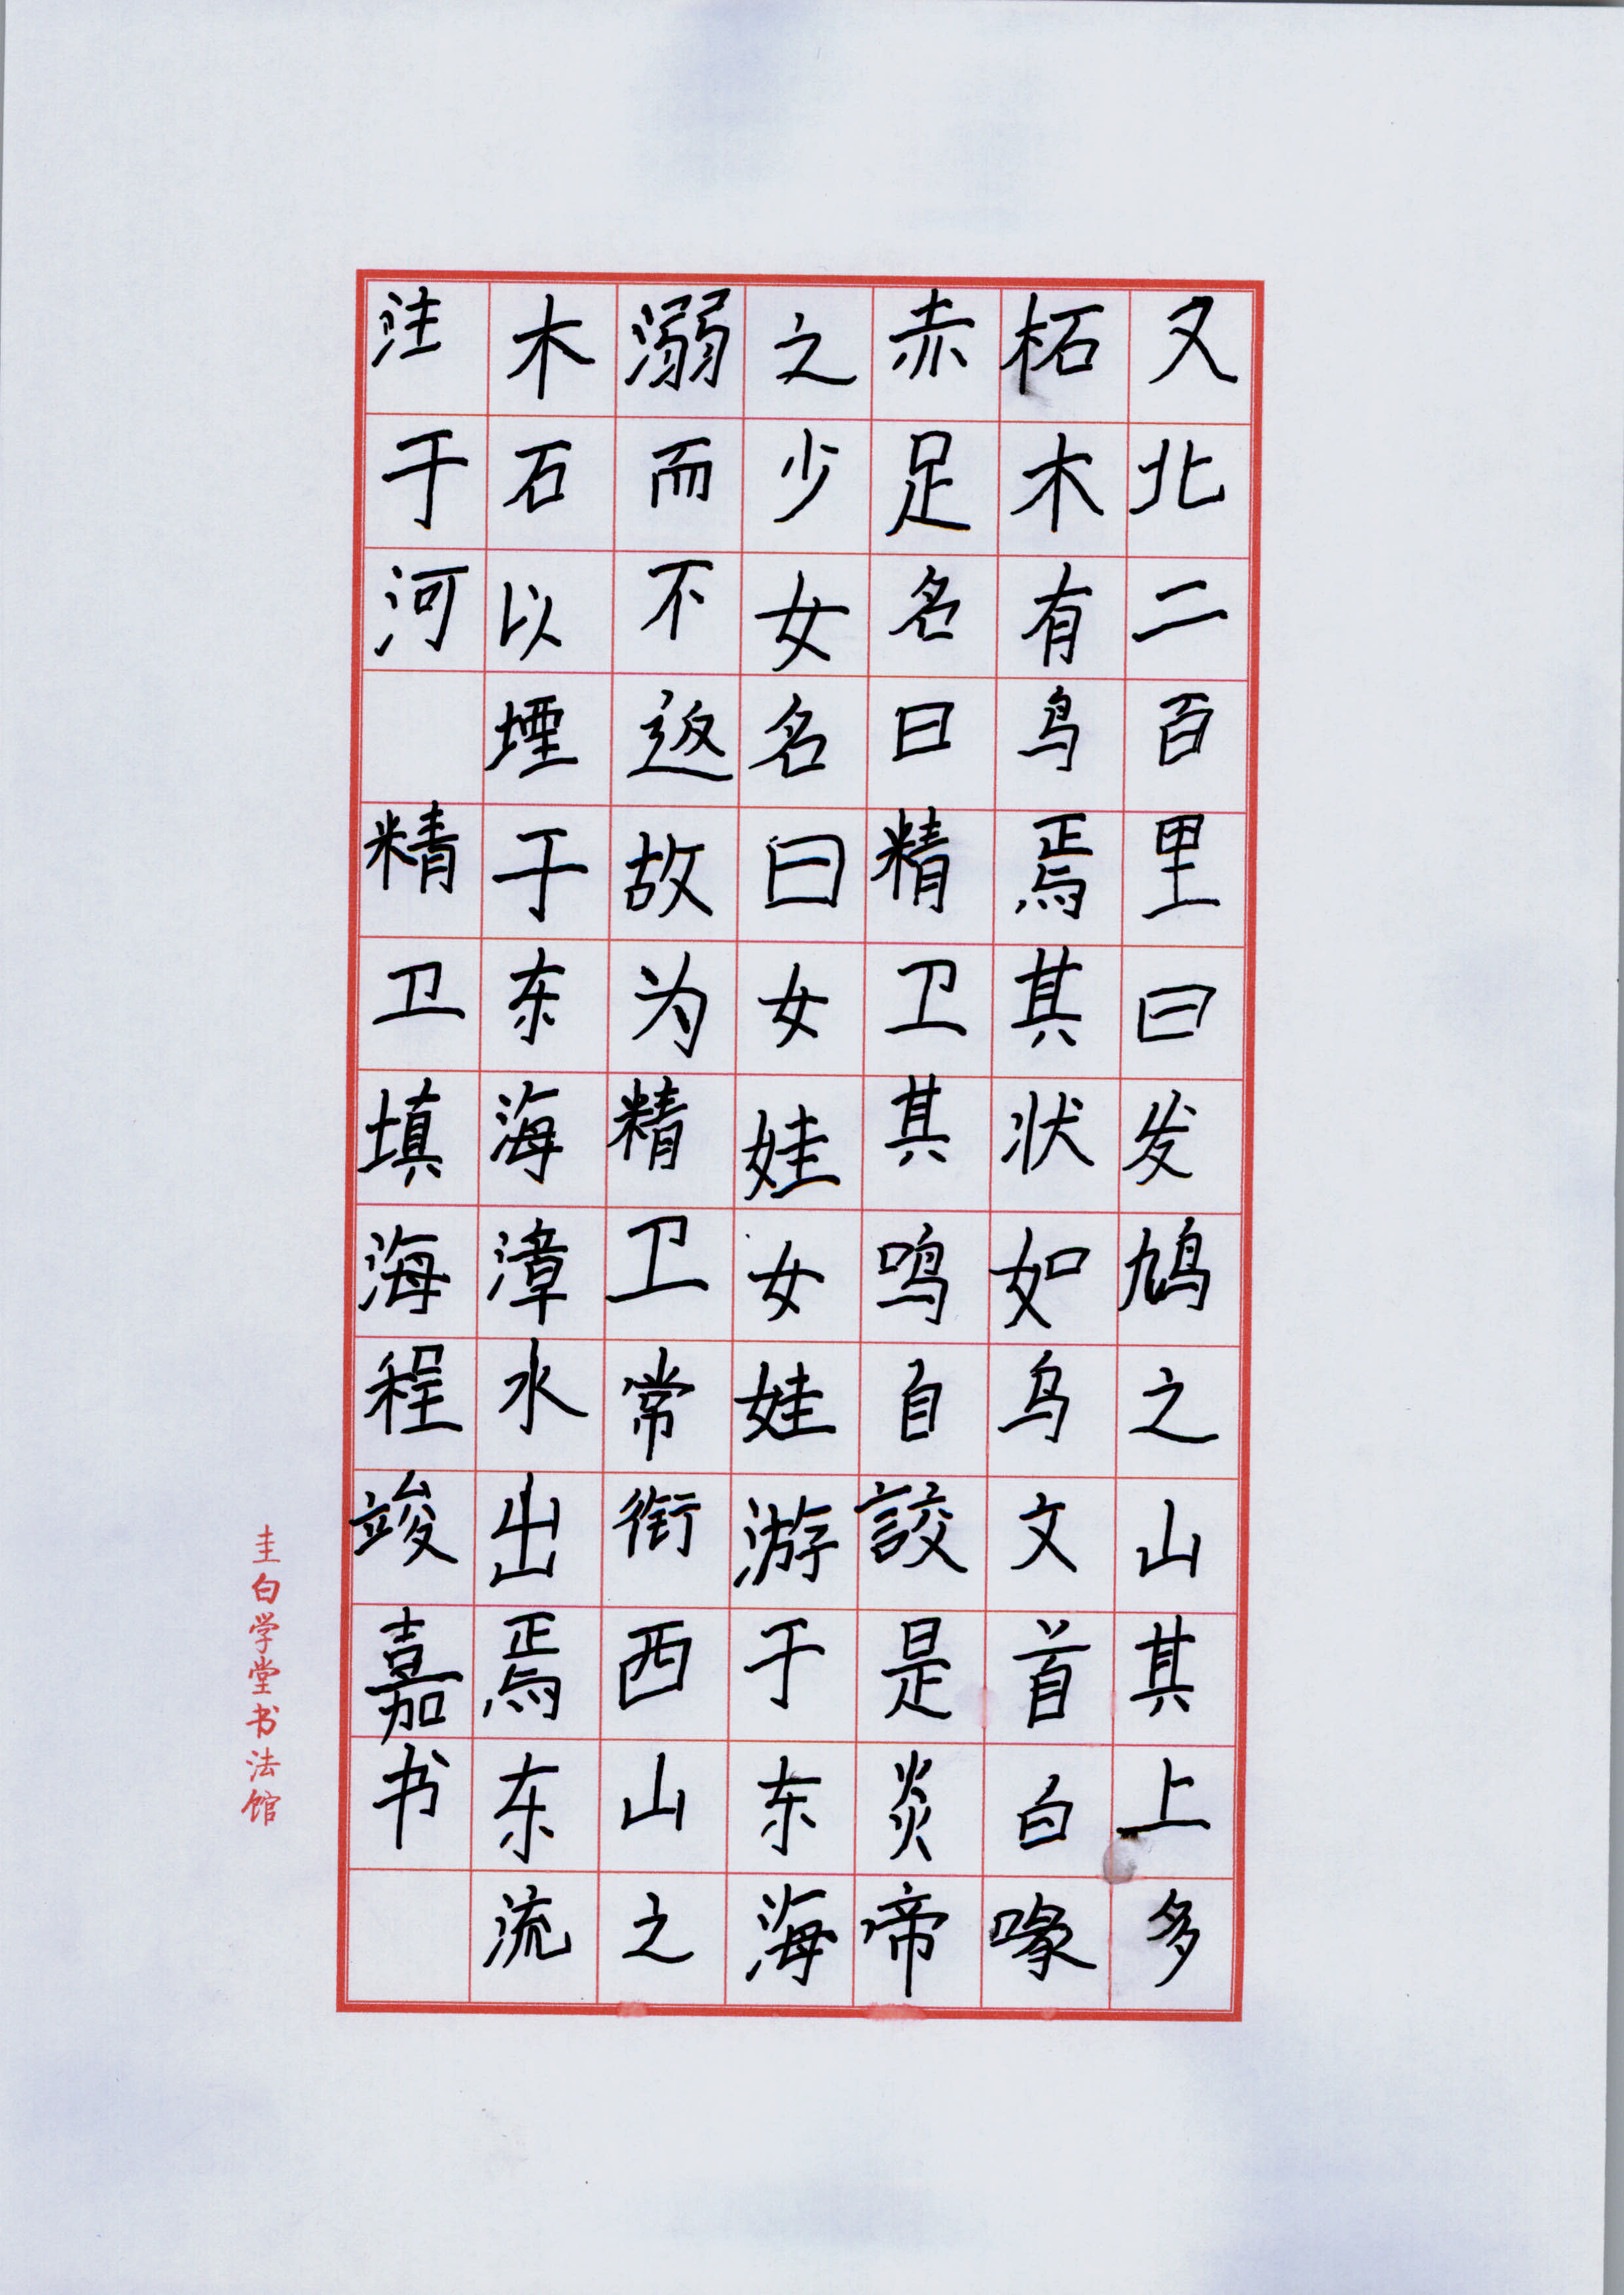 又北二百里曰发鸠之山其上多
柘木有鸟焉其状如乌文首白喙
赤足名曰精卫其鸣自詨是炎帝
之少女名曰女娃女娃游于东海
溺而不返故为精卫常衔西山之
木石以堙于东海漳水出焉东流
注于河 精卫填海程竣嘉书
圭白学堂书法馆